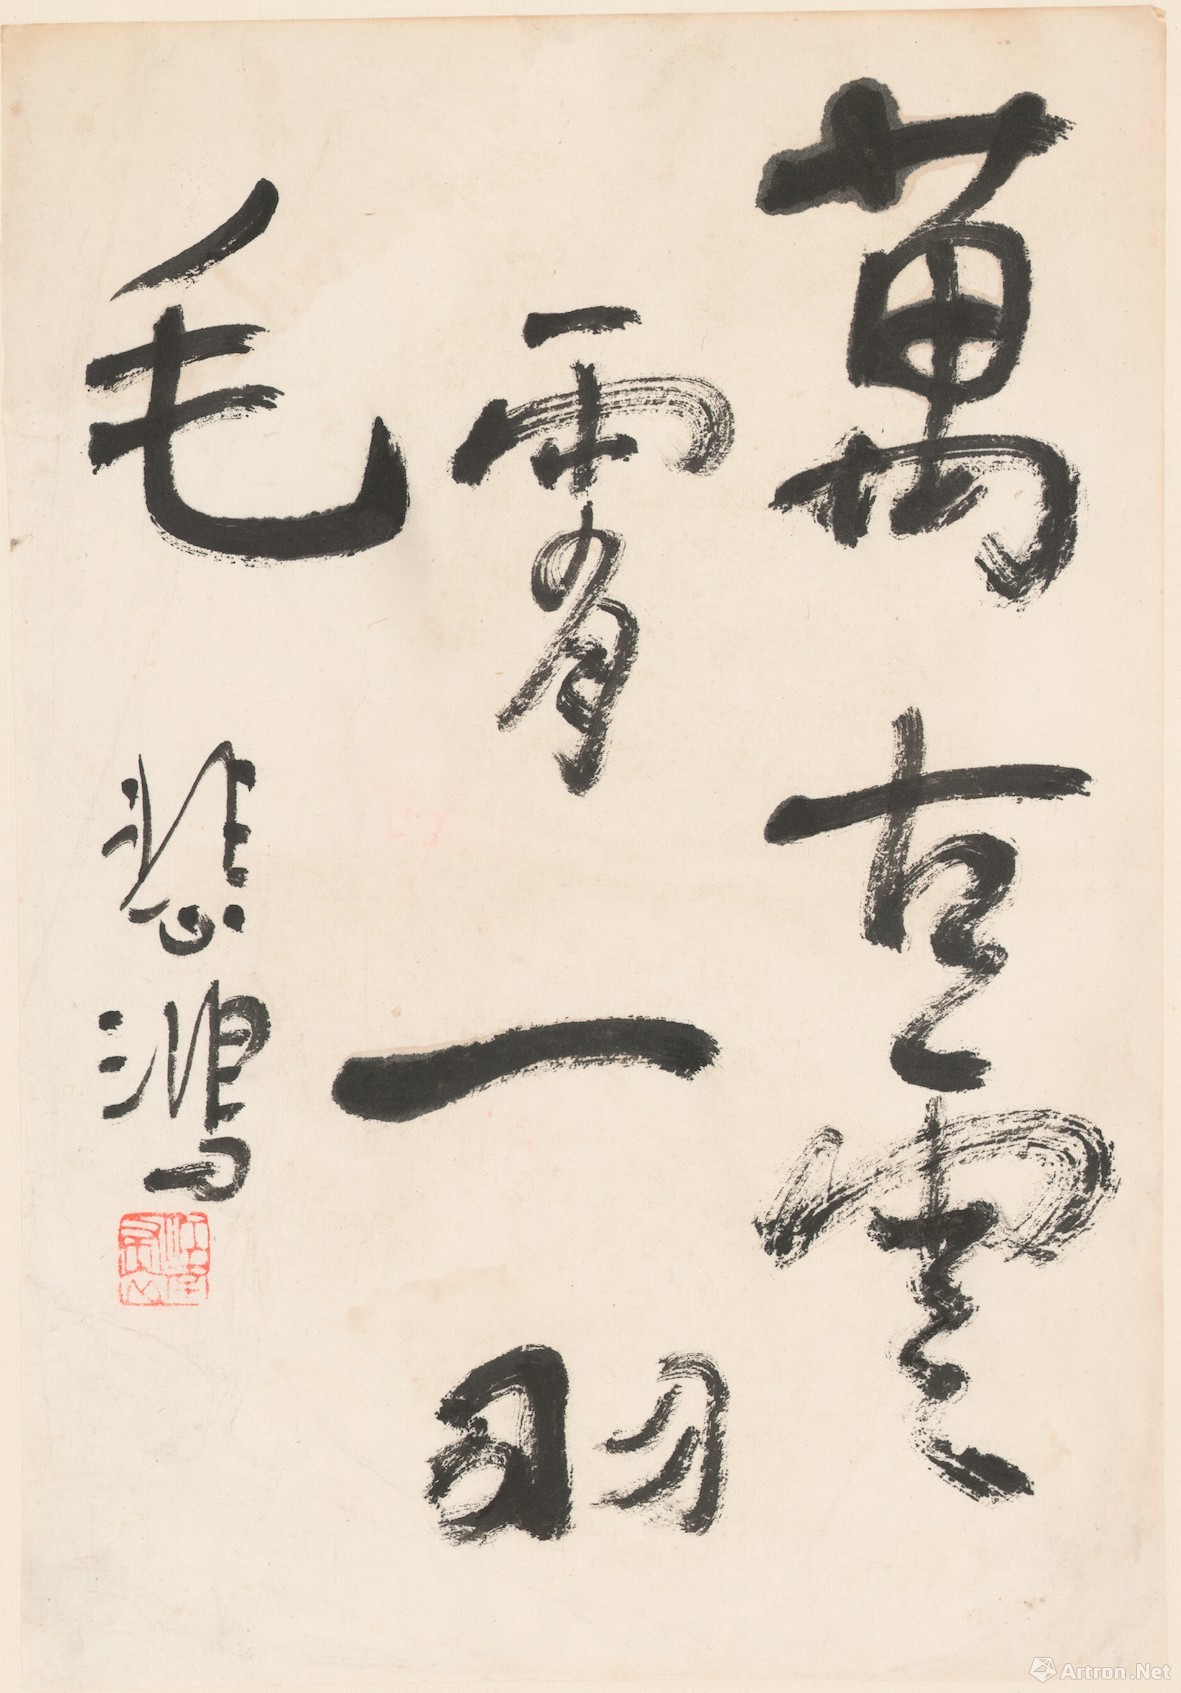 萬古雲
霄一羽
毛
悲鴻
Artron.Net